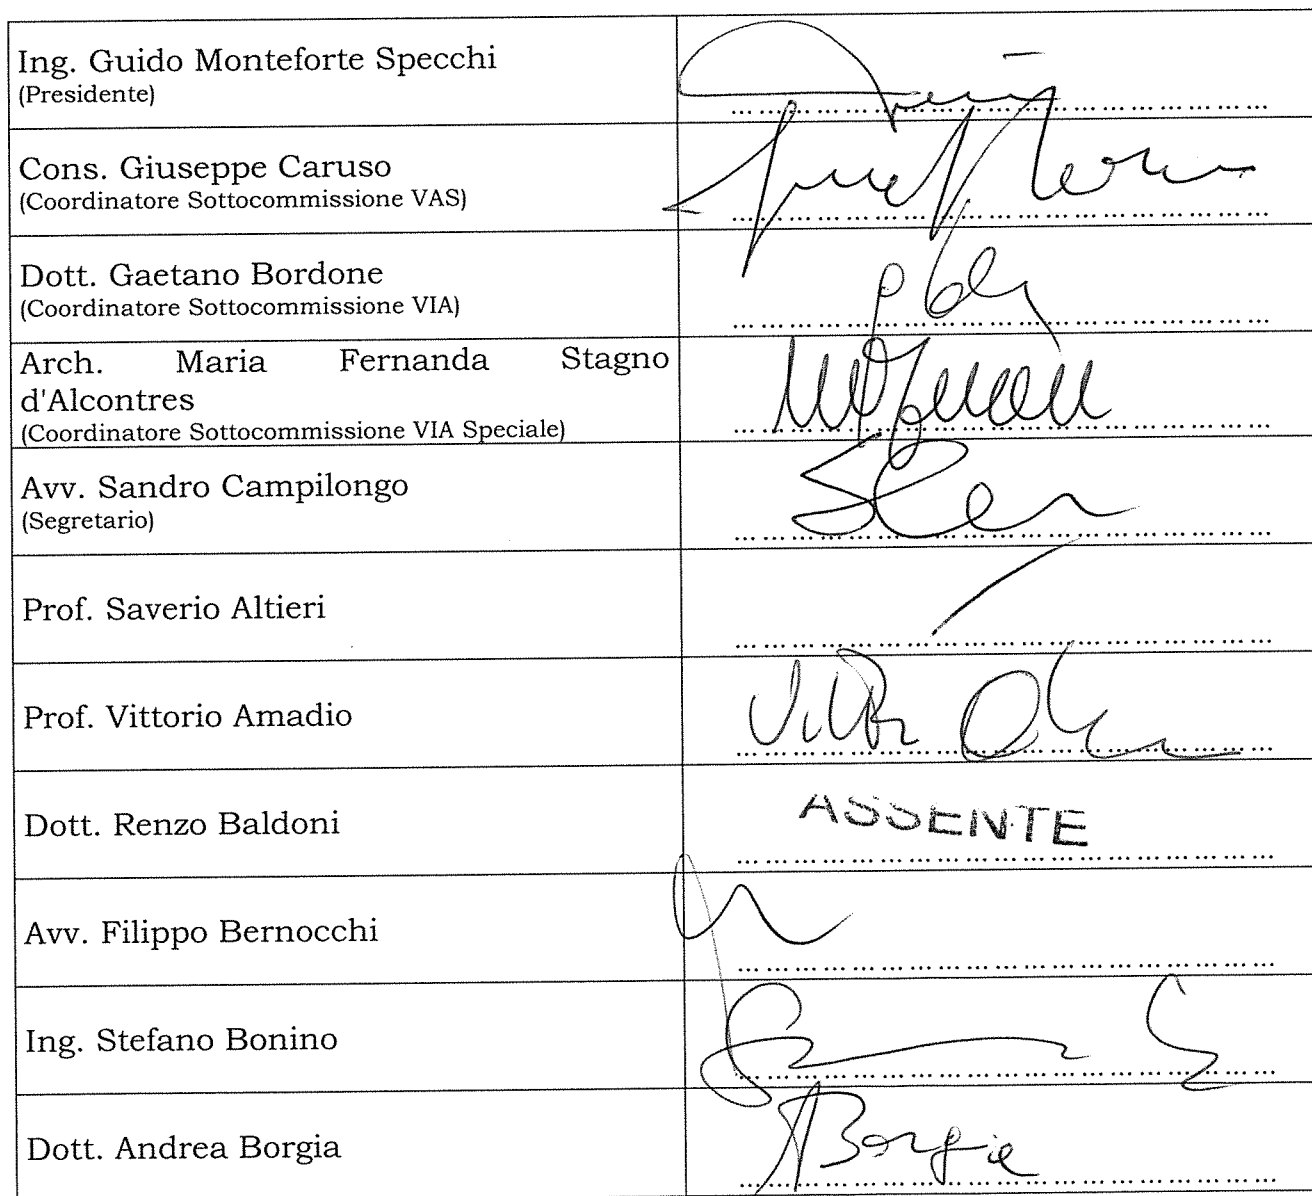 Ing. Guido Monteforte Specchi
(Presidente)
Cons. Giuseppe Caruso
(Coordinatore Sottocommissione VAS)
Dott. Gaetano Bordone
(Coordinatore Sottocommissione VIA)
Arch. Maria Fernanda Stagno
d'Alcontres
(Coordinatore Sottocommissione VIA Speciale)
Avv. Sandro Campilongo
(Segretario)
Prof. Saverio Altieri
Prof. Vittorio Amadio
Dott. Renzo Baldoni
ASSENTE
Avv. Filippo Bernocchi
Ing. Stefano Bonino
Dott. Andrea Borgia
ABorgia